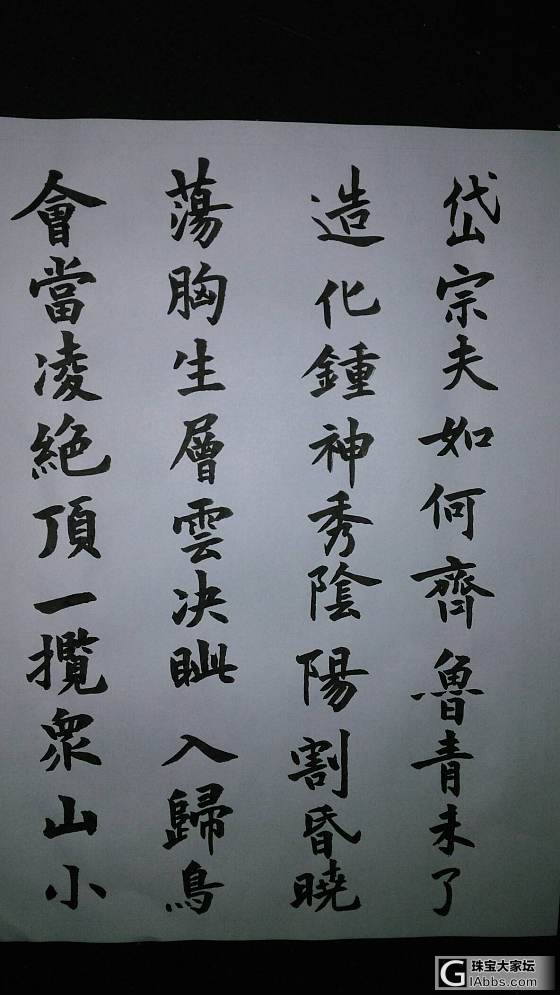 岱宗夫如何齊魯青未了
造化鍾神秀陰陽割昏曉
蕩胸生層雲決眦入歸鳥
會當凌絕頂一攬眾山小
珠宝大家坛
GIAbbs.com